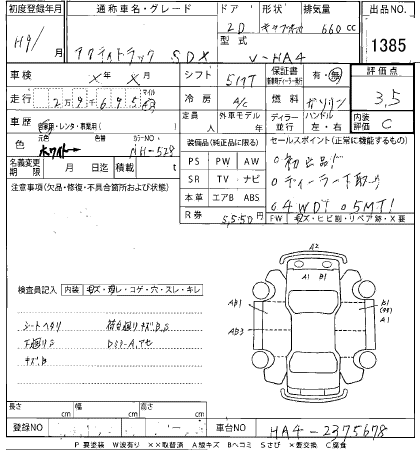 初度登録年月 通称車名・グレード ドア 形状 排気量 出品NO.
H9/ 月 アクティトラック SDX 2D キャブオーバ 660cc 1385
型式 V-HA4
車検 ×年×月 シフト 5MT 保証書 有・無 評価点
走行 29695 マイル 冷房 A/C 燃料 ガソリン 3,5
車歴 自家・レンタ・事業用( ) 定員 人 外車モデル 年 ディーラー 並行 ハンドル 左・右 内装評価 C
色 元色 ホワイト 色替 カラーNO. NH-528 装備品(純正品に限る) セールスポイント(正常に機能するもの)
名義変更期限 月 日迄 積載 t PS PW AW
注意事項(欠品・修復・不具合箇所および状態) SR TV ナビ
本革 エアB ABS
R券 5,550円
○初出品!
○ディーラー下取り
○4WD! ○5MT!
FW キズ・ヒビ割・リペア跡・X要
検査員記入 内装 キズ・汚レ・コゲ・穴・スレ・キレ
シートヘタリ 荷台廻りキズB,S
下廻りS
キズB
A2
A1 B1
AB1 B1
AB3 A1
長さ cm 幅 cm 高さ cm
登録NO 車台NO HA4-2375678
P要塗装 W波有り ××取替済 A線キズ Bヘコミ Sさび ×要交換 C腐食